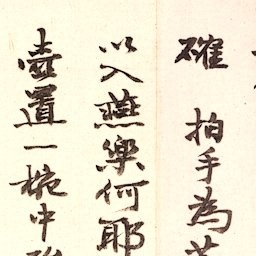 確 拍手為
以入燕樂何耶
壺置一椀中